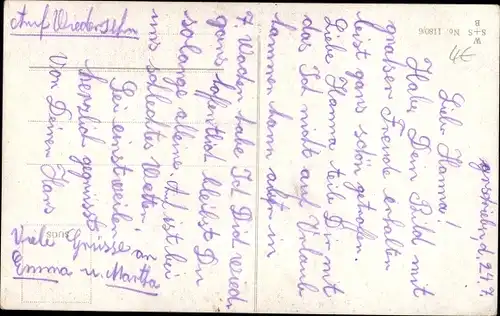 geschrieben, d. 24.7.
Liebe Hanna!
Habe Dein Bild mit
großer Freude erhalten
bist ganz schön getroffen.
Liebe Hanna teile Dir mit
das Ich nicht auf Urlaub
kommen kann erst in
7 Wochen habe Ich Dich wieder
ganz hoffentlich bleibst Du
solange alleine. Es ist bei
uns schlechtes Wetter.
Sei einstweilen
herzlich gegrüsst
Von Deinen Hans
Auf Wiedersehn
Viele Grüsse an
Emma u. Martha
W
S+S No. 1180/6
B